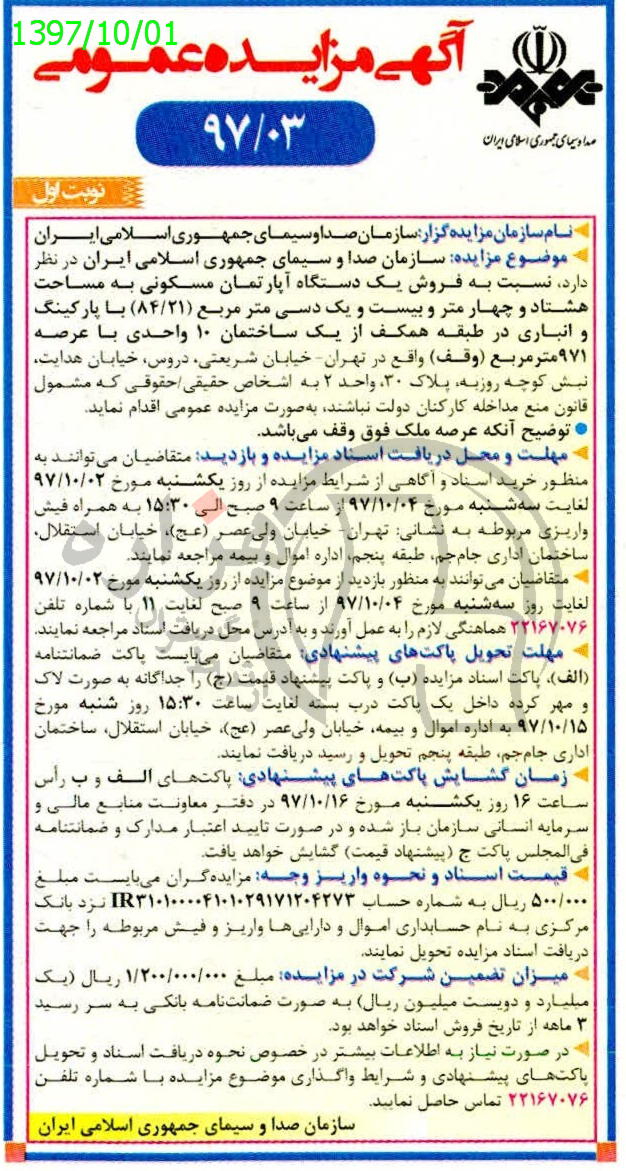 1397/10/01
آگهی مزایده عمومی
صدا و سیمای جمهوری اسلامی ایران
۹۷/۰۳
نوبت اول
نام سازمان مزایده گزار: سازمان صدا و سیمای جمهوری اسلامی ایران
موضوع مزایده: سازمان صدا و سیمای جمهوری اسلامی ایران در نظر
دارد، نسبت به فروش یک دستگاه آپارتمان مسکونی به مساحت
هشتاد و چهار متر و بیست و یک دسی متر مربع (۸۴/۲۱) با پارکینگ
و انباری در طبقه همکف از یک ساختمان ۱۰ واحدی با عرصه
۹۷۱مترمربع (وقف) واقع در تهران- خیابان شریعتی، دروس، خیابان هدایت،
نبش کوچه روزبه، پلاک ۳۰، واحد ۲ به اشخاص حقیقی/حقوقی که مشمول
قانون منع مداخله کارکنان دولت نباشند، به‌صورت مزایده عمومی اقدام نماید.
● توضیح آنکه عرصه ملک فوق وقف می‌باشد.
مهلت و محل دریافت اسناد مزایده و بازدید: متقاضیان می‌توانند به
منظور خرید اسناد و آگاهی از شرایط مزایده از روز یکشنبه مورخ ۹۷/۱۰/۰۲
لغایت سه‌شنبه مورخ ۹۷/۱۰/۰۴ از ساعت ۹ صبح الی ۱۵:۳۰ به همراه فیش
واریزی مربوطه به نشانی: تهران- خیابان ولی‌عصر (عج)، خیابان استقلال،
ساختمان اداری جام‌جم، طبقه پنجم، اداره اموال و بیمه مراجعه نمایند.
متقاضیان می‌توانند به منظور بازدید از موضوع مزایده از روز یکشنبه مورخ ۹۷/۱۰/۰۲
لغایت روز سه‌شنبه مورخ ۹۷/۱۰/۰۴ از ساعت ۹ صبح لغایت ۱۱ با شماره تلفن
۲۲۱۶۷۰۷۶ هماهنگی لازم را به عمل آورند و به آدرس محل دریافت اسناد مراجعه نمایند.
مهلت تحویل پاکت‌های پیشنهادی: متقاضیان می‌بایست پاکت ضمانتنامه
(الف)، پاکت اسناد مزایده (ب) و پاکت پیشنهاد قیمت (ج) را جداگانه به صورت لاک
و مهر کرده داخل یک پاکت درب بسته لغایت ساعت ۱۵:۳۰ روز شنبه مورخ
۹۷/۱۰/۱۵ به اداره اموال و بیمه، خیابان ولی‌عصر (عج)، خیابان استقلال، ساختمان
اداری جام‌جم، طبقه پنجم تحویل و رسید دریافت نمایند.
زمان گشایش پاکت‌های پیشنهادی: پاکت‌های الف و ب رأس
ساعت ۱۶ روز یکشنبه مورخ ۹۷/۱۰/۱۶ در دفتر معاونت منابع مالی و
سرمایه انسانی سازمان باز شده و در صورت تایید اعتبار مدارک و ضمانتنامه
فی‌المجلس پاکت ج (پیشنهاد قیمت) گشایش خواهد یافت.
قیمت اسناد و نحوه واریز وجه: مزایده‌گران می‌بایست مبلغ
۵۰۰/۰۰۰ ریال به شماره حساب IR۳۱۰۱۰۰۰۰۴۱۰۱۰۲۹۱۷۱۲۰۴۲۷۳ نزد بانک
مرکزی به نام حسابداری اموال و دارایی‌ها واریز و فیش مربوطه را جهت
دریافت اسناد مزایده تحویل نمایند.
میزان تضمین شرکت در مزایده: مبلغ ۱/۲۰۰/۰۰۰/۰۰۰ ریال (یک
میلیارد و دویست میلیون ریال) به صورت ضمانت‌نامه بانکی به سر رسید
۳ ماهه از تاریخ فروش اسناد خواهد بود.
در صورت نیاز به اطلاعات بیشتر در خصوص نحوه دریافت اسناد و تحویل
پاکت‌های پیشنهادی و شرایط واگذاری موضوع مزایده با شماره تلفن
۲۲۱۶۷۰۷۶ تماس حاصل نمایید.
سازمان صدا و سیمای جمهوری اسلامی ایران